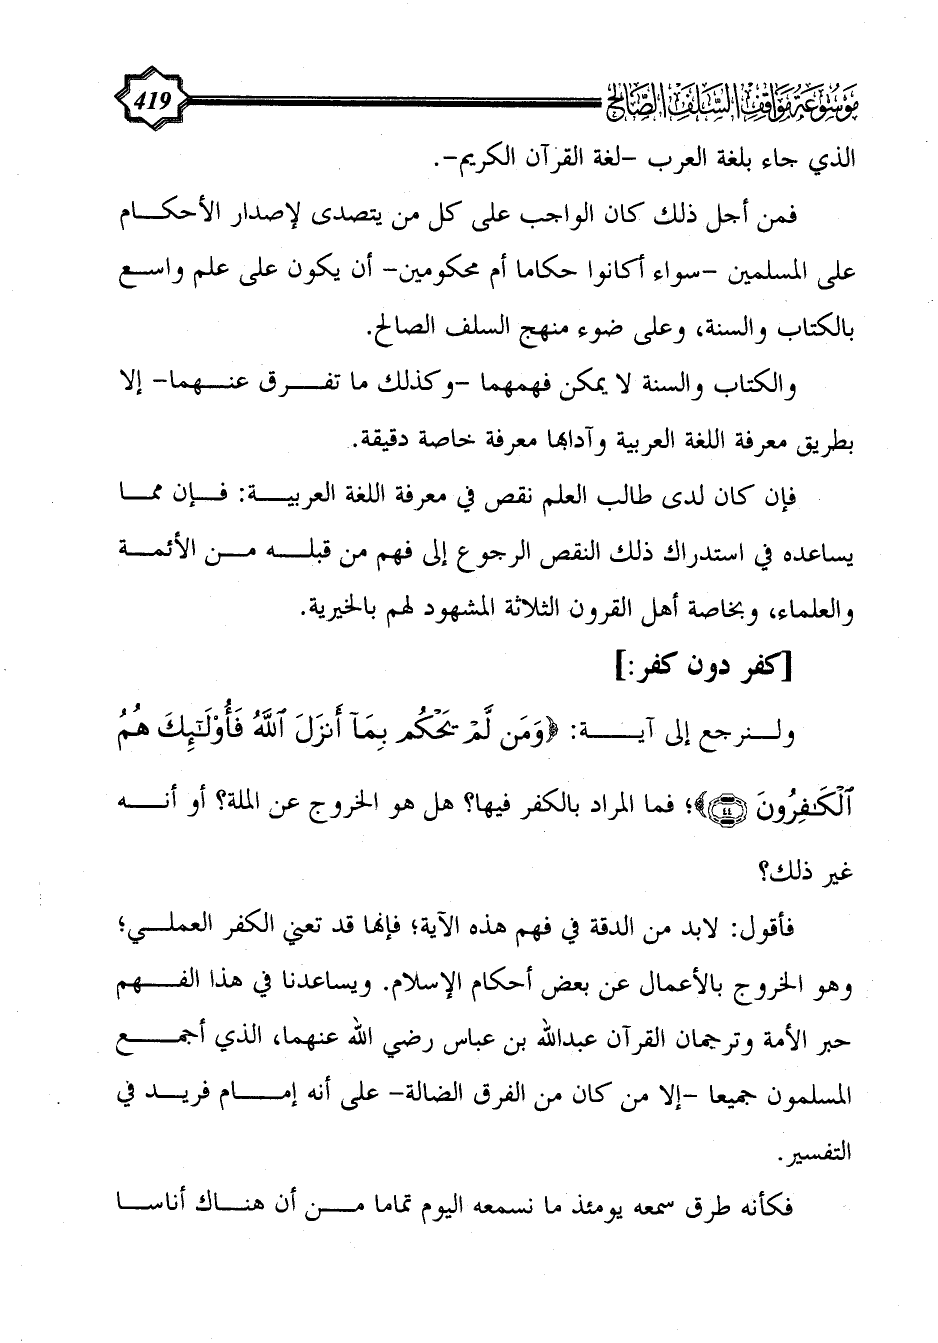 موسوعة مواقف السلف الصالح 419
الذي جاء بلغة العرب -لغة القرآن الكريم-.
فمن أجل ذلك كان الواجب على كل من يتصدى لإصدار الأحكام
على المسلمين -سواء أكانوا حكاما أم محكومين- أن يكون على علم واسع
بالكتاب والسنة، وعلى ضوء منهج السلف الصالح.
والكتاب والسنة لا يمكن فهمهما -وكذلك ما تفرق عنهما- إلا
بطريق معرفة اللغة العربية وآدابها معرفة خاصة دقيقة.
فإن كان لدى طالب العلم نقص في معرفة اللغة العربية: فإن مما
يساعده في استدراك ذلك النقص الرجوع إلى فهم من قبله من الأئمة
والعلماء، وبخاصة أهل القرون الثلاثة المشهود لهم بالخيرية.
[كفر دون كفر:]
ولنرجع إلى آية: ﴿وَمَن لَّمْ يَحْكُم بِمَآ أَنزَلَ ٱللَّهُ فَأُوْلَـٰٓئِكَ هُمُ
ٱلْكَـٰفِرُونَ ٤٤﴾؛ فما المراد بالكفر فيها؟ هل هو الخروج عن الملة؟ أو أنه
غير ذلك؟
فأقول: لابد من الدقة في فهم هذه الآية؛ فإنها قد تعني الكفر العملي؛
وهو الخروج بالأعمال عن بعض أحكام الإسلام. ويساعدنا في هذا الفهم
حبر الأمة وترجمان القرآن عبدالله بن عباس رضي الله عنهما، الذي أجمع
المسلمون جميعا -إلا من كان من الفرق الضالة- على أنه إمام فريد في
التفسير.
فكأنه طرق سمعه يومئذ ما نسمعه اليوم تماما من أن هناك أناسا